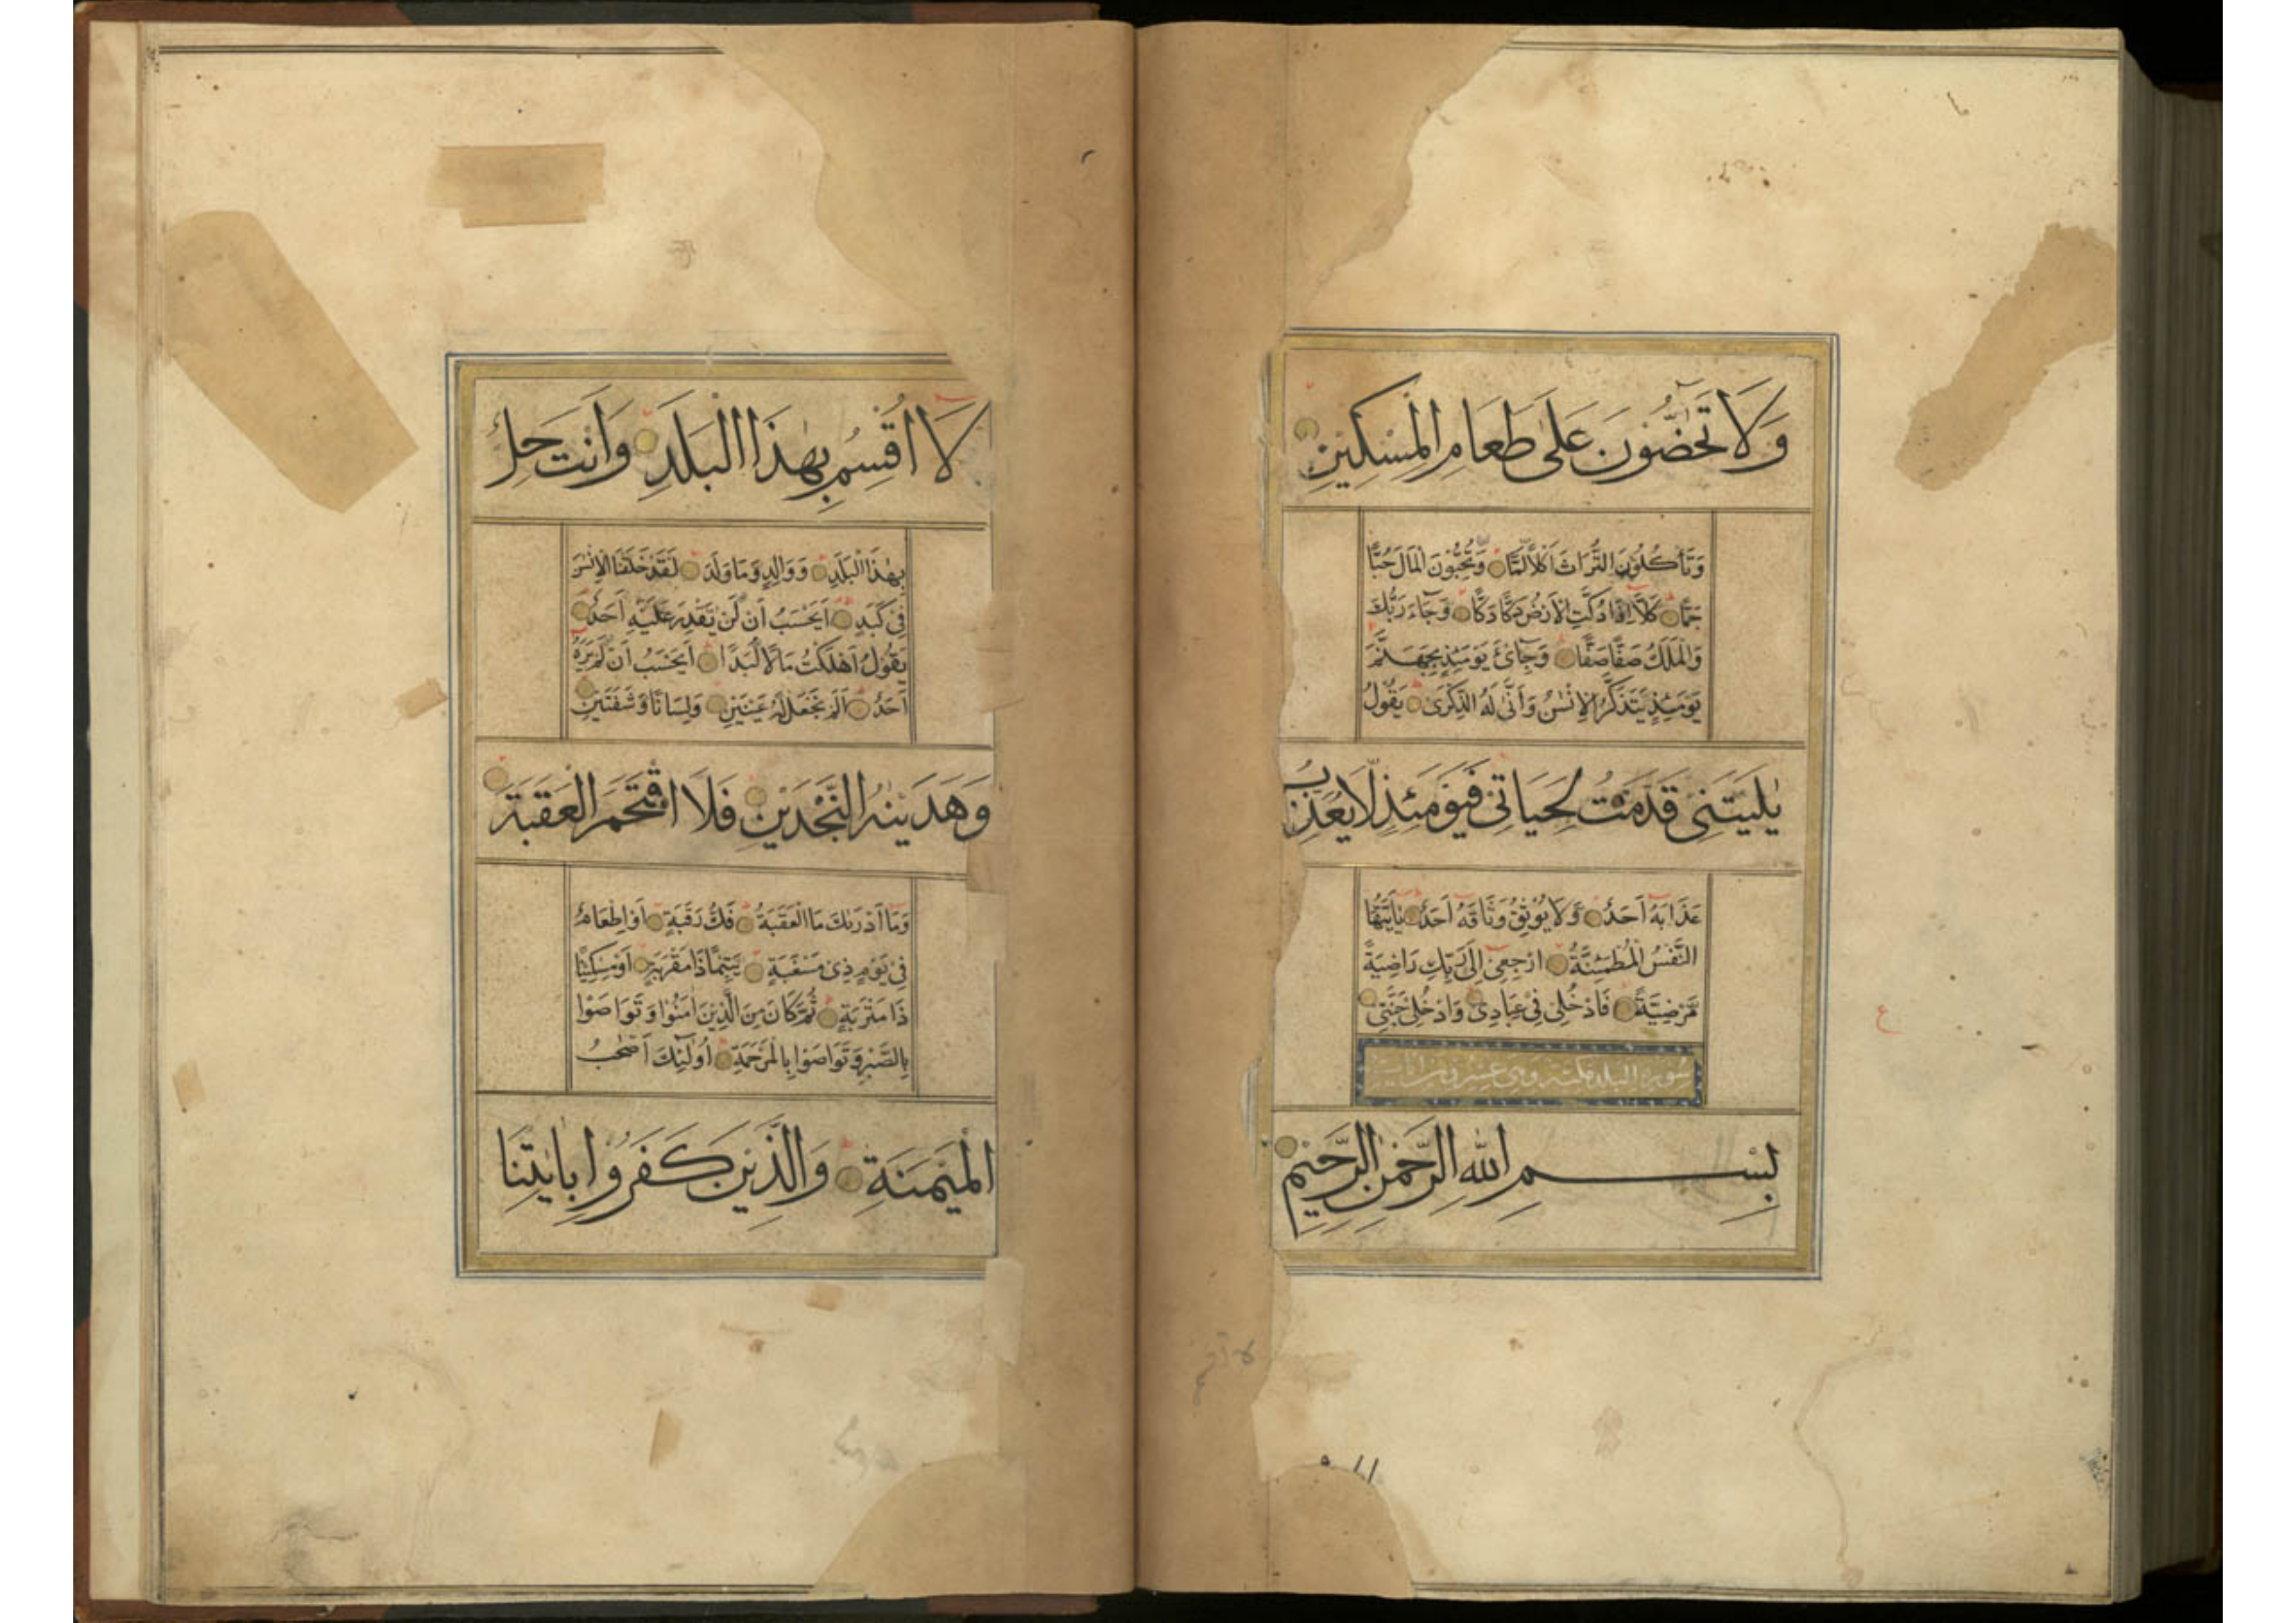 وَلَا تَحٰضُّونَ عَلَى طَعَامِ الْمِسْكِينِ
وَتَأْكُلُونَ التُّرَاثَ اَكْلًا لَمًّا وَتُحِبُّونَ الْمَالَ حُبًّا
جَمًّا كَلَّا اِذَا دُكَّتِ الْاَرْضُ دَكًّا دَكًّا وَجَاءَ رَبُّكَ
وَالْمَلَكُ صَفًّا صَفًّا وَجِائَ يَوْمَئِذٍ بِجَهَنَّمَ
يَوْمَئِذٍ يَتَذَكَّرُ الْاِنْسٰنُ وَاَنّٰى لَهُ الذِّكْرٰى يَقُولُ
يٰلَيْتَنِى قَدَّمْتُ لِحَيَاتِى فَيَوْمَئِذٍ لَّا يُعَذِّبُ
عَذَابَهُ اَحَدٌ وَّلَا يُوْثِقُ وَثَاقَهُ اَحَدٌ يٰاَيَّتُهَا
النَّفْسُ الْمُطْمَئِنَّةُ ارْجِعِى اِلٰى رَبِّكِ رَاضِيَةً
مَّرْضِيَّةً فَادْخُلِى فِى عِبَادِى وَادْخُلِى جَنَّتِى
سورة البلد مكية وهى عشرون اٰيات
بِسْمِ اللّٰهِ الرَّحْمٰنِ الرَّحِيْمِ
لَا اُقْسِمُ بِهٰذَا الْبَلَدِ وَاَنْتَ حِلٌّ
بِهٰذَا الْبَلَدِ وَوَالِدٍ وَمَا وَلَدَ لَقَدْ خَلَقْنَا الْاِنْسٰنَ
فِى كَبَدٍ اَيَحْسَبُ اَنْ لَنْ يَقْدِرَ عَلَيْهِ اَحَدٌ
يَقُوْلُ اَهْلَكْتُ مَالًا لُبَدًا اَيَحْسَبُ اَنْ لَمْ يَرَهُ
اَحَدٌ اَلَمْ نَجْعَلْ لَهُ عَيْنَيْنِ وَلِسَانًا وَشَفَتَيْنِ
وَهَدَيْنٰهُ النَّجْدَيْنِ فَلَا اقْتَحَمَ الْعَقَبَةَ
وَمَا اَدْرٰىكَ مَا الْعَقَبَةُ فَكُّ رَقَبَةٍ اَوْ اِطْعَامٌ
فِى يَوْمٍ ذِى مَسْغَبَةٍ يَتِيْمًا ذَا مَقْرَبَةٍ اَوْ مِسْكِيْنًا
ذَا مَتْرَبَةٍ ثُمَّ كَانَ مِنَ الَّذِيْنَ اٰمَنُوْا وَتَوَاصَوْا
بِالصَّبْرِ وَتَوَاصَوْا بِالْمَرْحَمَةِ اُولٰئِكَ اَصْحٰبُ
الْمَيْمَنَةِ وَالَّذِيْنَ كَفَرُوْا بِاٰيٰتِنَا